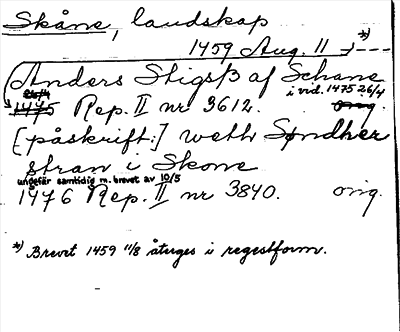 Skåne, landskap
1459 Aug. 11 *)
Anders Stigsß af Schane
26/4 i vid. 1475 26/4
1475 Rep. II nr 3612. orig.
[påskrift:] weth Søndher
stran i Skone
ungefär samtidig m. brevet av 10/5
1476 Rep. II nr 3840. orig.
*) Brevet 1459 11/8 återges i regestform.